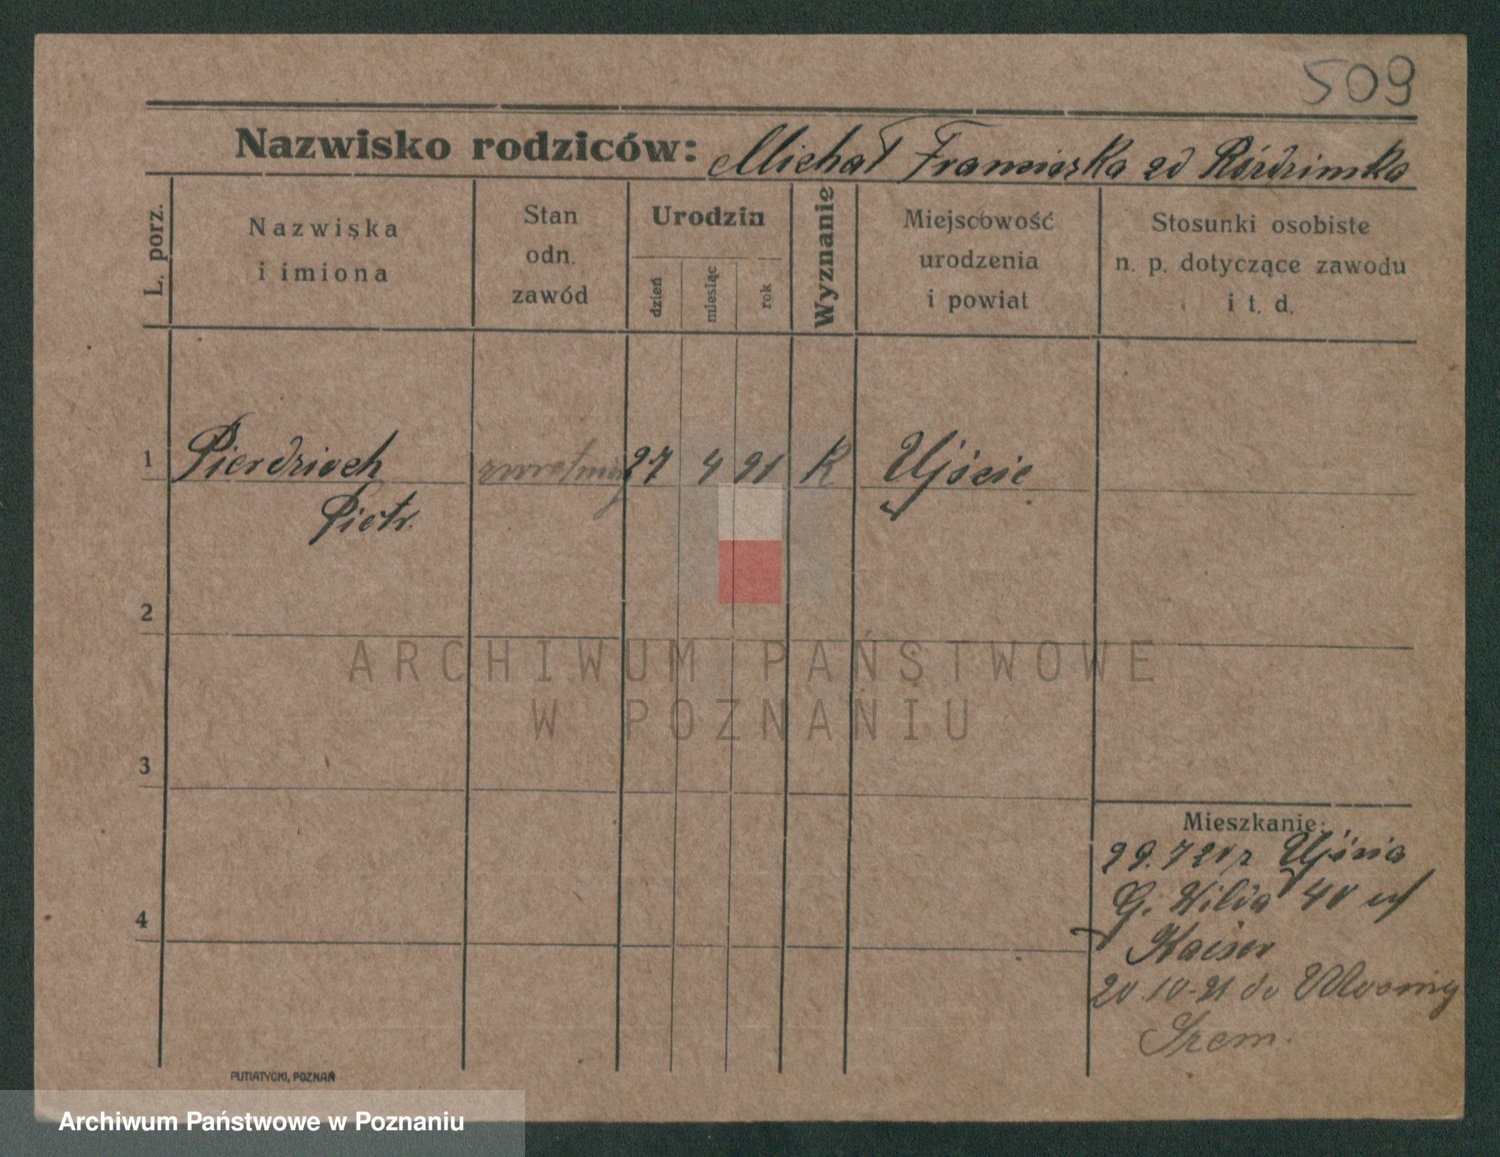 509
Nazwisko rodziców: Michał Franciszka zd Róździnska
L. porz.
Nazwiska i imiona
Stan odn. zawód
Urodzin
dzień
miesiąc
rok
Wyznanie
Miejscowość urodzenia i powiat
Stosunki osobiste n. p. dotyczące zawodu i t. d.
1 Pierdzioch 27 4 91 K Ujście
Piotr.
2
3
4
Mieszkanie:
29.7 20 z Ujścia
G. Wilda 40 u/
Kaiser
20.10-21 do
Szem.
PUTIATYCKI, POZNAŃ
ARCHIWUM PAŃSTWOWE
W POZNANIU
Archiwum Państwowe w Poznaniu